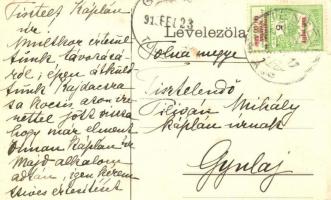 Tisztelt Káplán
úr
Multkor értesül-
tünk távozásá-
ról, épen átküld-
tünk Kajdacsra
sa kocsis azon üze-
nettel jött vissza
hogy már elment
onnan Káplán úr
Majd alkalom
adtán, igen kérem
szives értesítését
91. FEB 23
Levelezőlap
Tolna megye
Tisztelendő
Mihály
káplán úrnak
Gyulaj